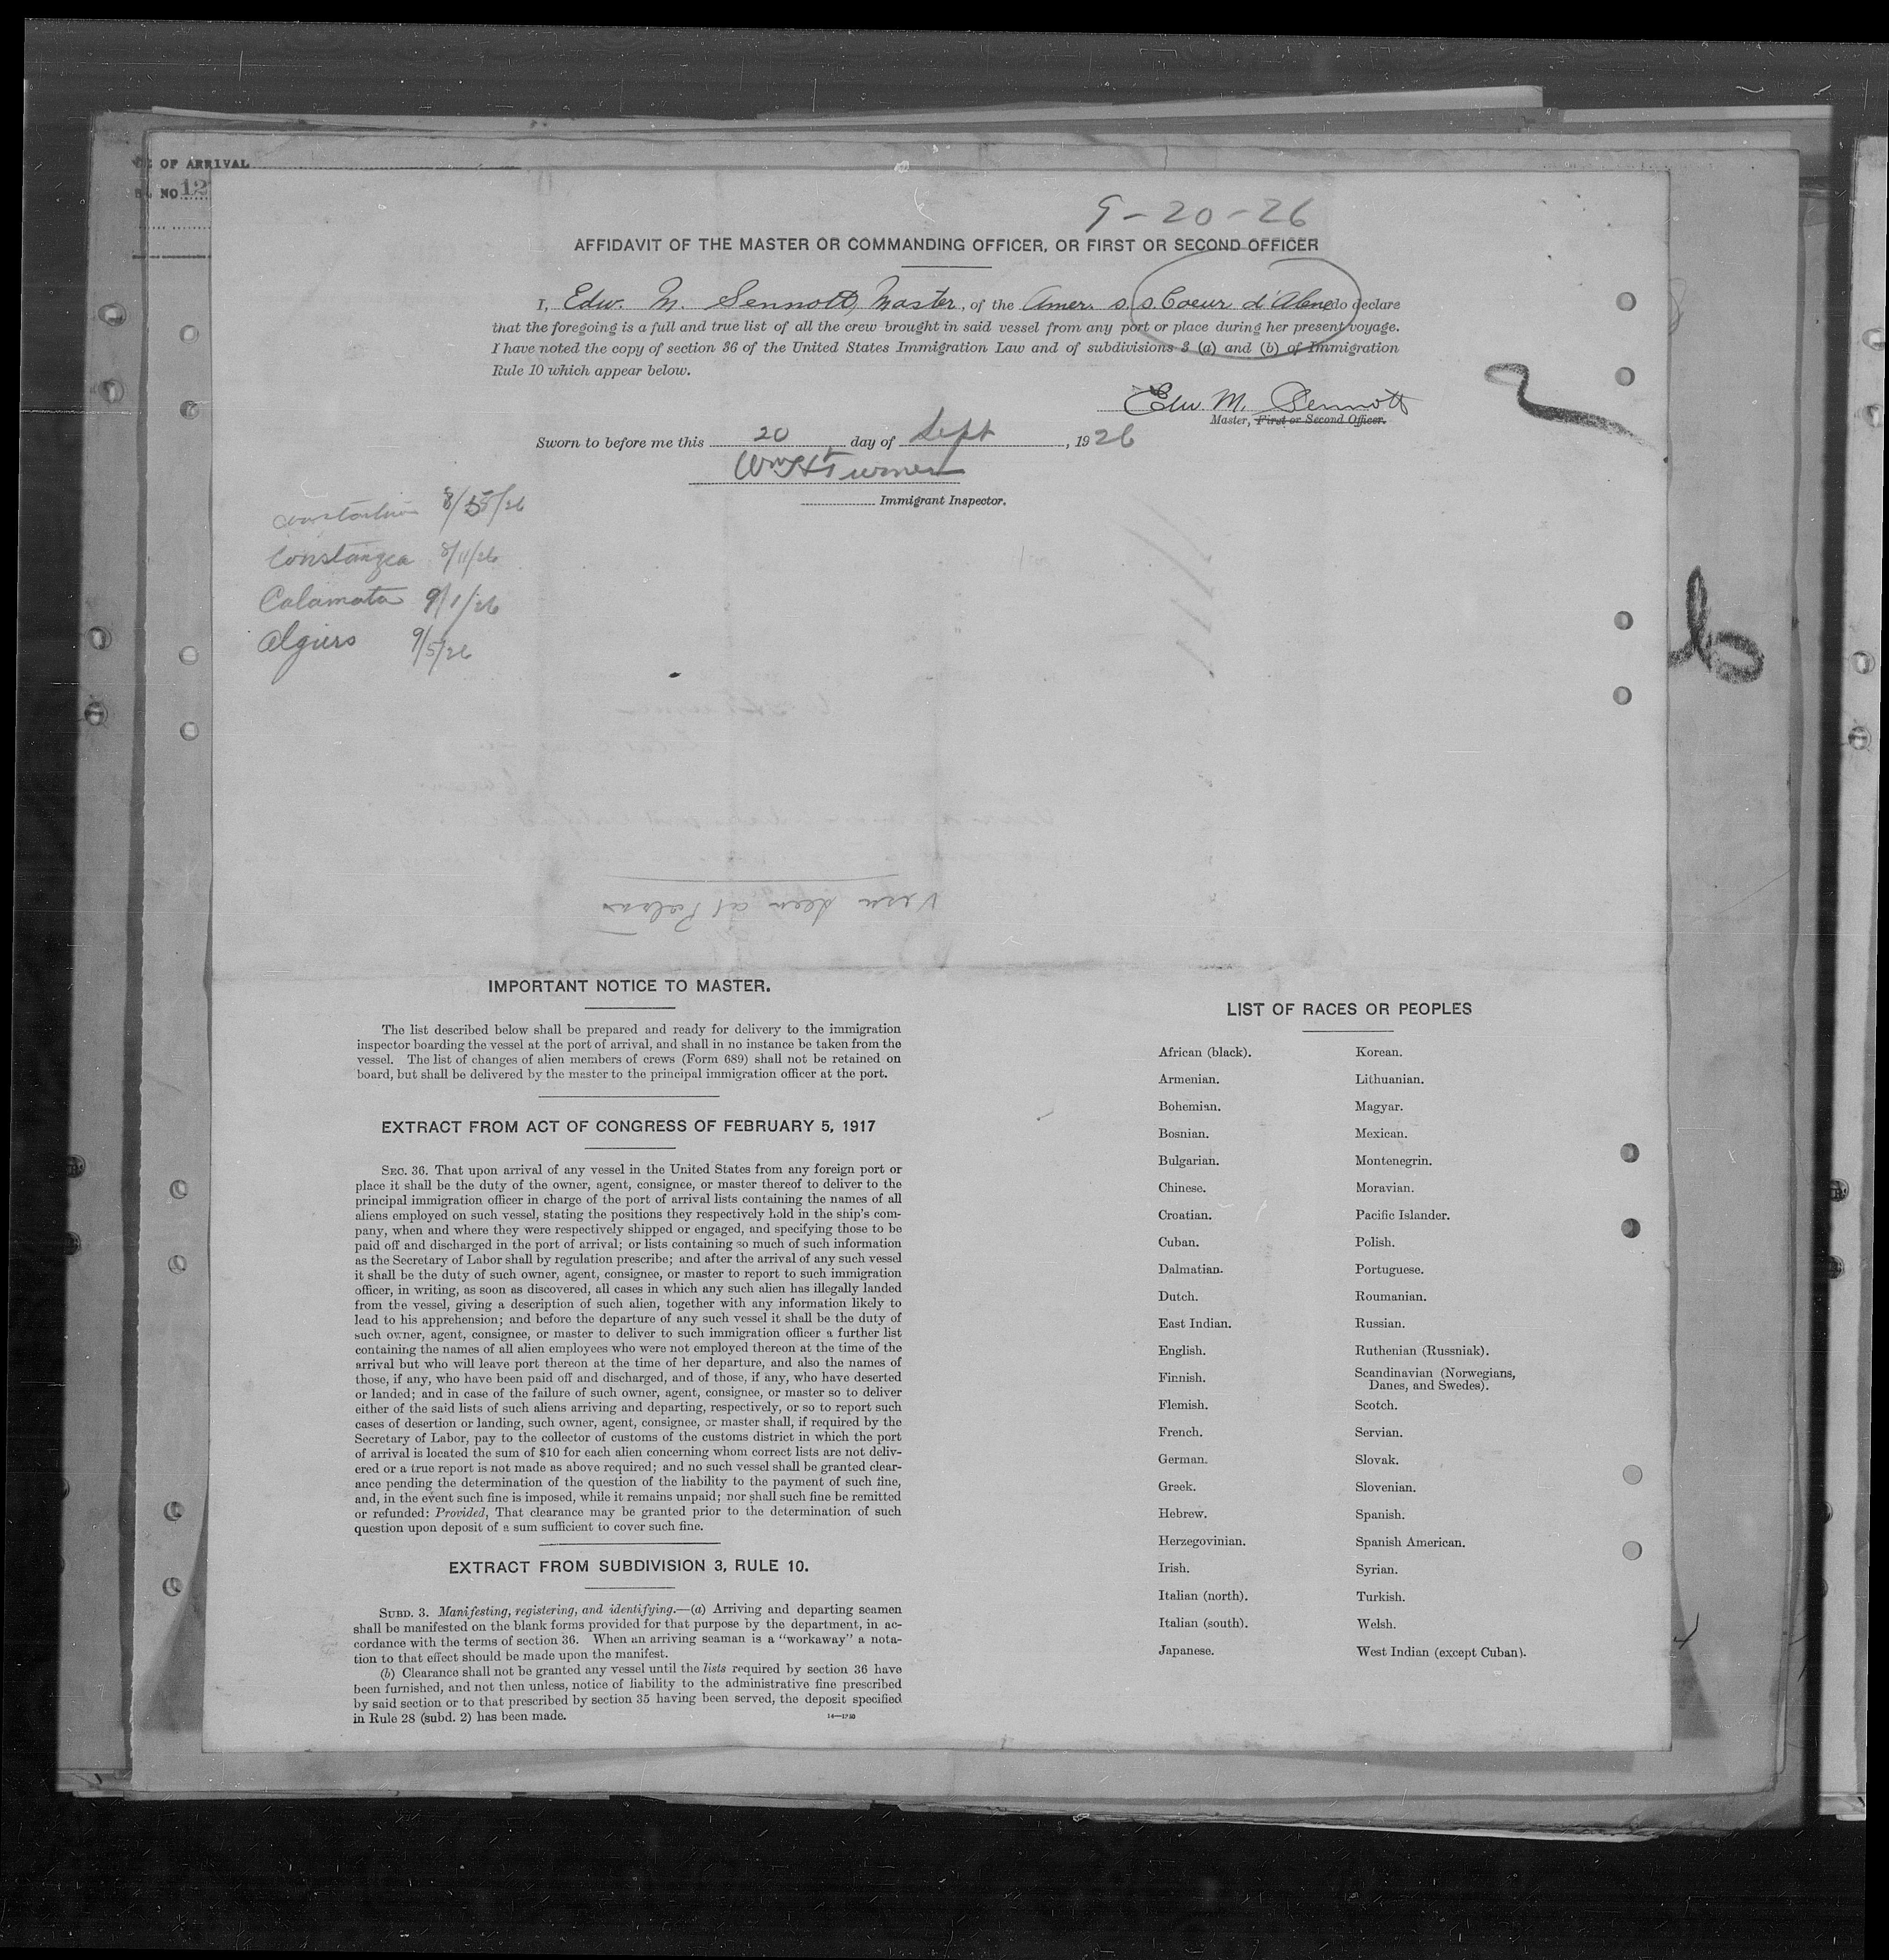 OF ARRIVAL
NO 12
9-20-26
AFFIDAVIT OF THE MASTER OR COMMANDING OFFICER, OR FIRST OR SECOND OFFICER
I, Edw. M. Sennott, Master, of the Amer. s.s. Coeur d'Alene do declare
that the foregoing is a full and true list of all the crew brought in said vessel from any port or place during her present voyage.
I have noted the copy of section 36 of the United States Immigration Law and of subdivisions 3 (a) and (b) of Immigration
Rule 10 which appear below.
Edw. M. Sennott
Master, First or Second Officer.
Sworn to before me this 20 day of Sept, 1926
Wm H Turner
Immigrant Inspector.
Constanza 8/11/26
Calamata 9/1/26
Algiers 9/5/26
2
b
seen at
IMPORTANT NOTICE TO MASTER.
The list described below shall be prepared and ready for delivery to the immigration
inspector boarding the vessel at the port of arrival, and shall in no instance be taken from the
vessel. The list of changes of alien members of crews (Form 689) shall not be retained on
board, but shall be delivered by the master to the principal immigration officer at the port.
EXTRACT FROM ACT OF CONGRESS OF FEBRUARY 5, 1917
SEC. 36. That upon arrival of any vessel in the United States from any foreign port or
place it shall be the duty of the owner, agent, consignee, or master thereof to deliver to the
principal immigration officer in charge of the port of arrival lists containing the names of all
aliens employed on such vessel, stating the positions they respectively hold in the ship's com-
pany, when and where they were respectively shipped or engaged, and specifying those to be
paid off and discharged in the port of arrival; or lists containing so much of such information
as the Secretary of Labor shall by regulation prescribe; and after the arrival of any such vessel
it shall be the duty of such owner, agent, consignee, or master to report to such immigration
officer, in writing, as soon as discovered, all cases in which any such alien has illegally landed
from the vessel, giving a description of such alien, together with any information likely to
lead to his apprehension; and before the departure of any such vessel it shall be the duty of
such owner, agent, consignee, or master to deliver to such immigration officer a further list
containing the names of all alien employees who were not employed thereon at the time of the
arrival but who will leave port thereon at the time of her departure, and also the names of
those, if any, who have been paid off and discharged, and of those, if any, who have deserted
or landed; and in case of the failure of such owner, agent, consignee, or master so to deliver
either of the said lists of such aliens arriving and departing, respectively, or so to report such
cases of desertion or landing, such owner, agent, consignee, or master shall, if required by the
Secretary of Labor, pay to the collector of customs of the customs district in which the port
of arrival is located the sum of $10 for each alien concerning whom correct lists are not deliv-
ered or a true report is not made as above required; and no such vessel shall be granted clear-
ance pending the determination of the question of the liability to the payment of such fine,
and, in the event such fine is imposed, while it remains unpaid; nor shall such fine be remitted
or refunded: Provided, That clearance may be granted prior to the determination of such
question upon deposit of a sum sufficient to cover such fine.
EXTRACT FROM SUBDIVISION 3, RULE 10.
SUBD. 3. Manifesting, registering, and identifying.—(a) Arriving and departing seamen
shall be manifested on the blank forms provided for that purpose by the department, in ac-
cordance with the terms of section 36. When an arriving seaman is a "workaway" a nota-
tion to that effect should be made upon the manifest.
(b) Clearance shall not be granted any vessel until the lists required by section 36 have
been furnished, and not then unless, notice of liability to the administrative fine prescribed
by said section or to that prescribed by section 35 having been served, the deposit specified
in Rule 28 (subd. 2) has been made.
LIST OF RACES OR PEOPLES
African (black).
Armenian.
Bohemian.
Bosnian.
Bulgarian.
Chinese.
Croatian.
Cuban.
Dalmatian.
Dutch.
East Indian.
English.
Finnish.
Flemish.
French.
German.
Greek.
Hebrew.
Herzegovinian.
Irish.
Italian (north).
Italian (south).
Japanese.
Korean.
Lithuanian.
Magyar.
Mexican.
Montenegrin.
Moravian.
Pacific Islander.
Polish.
Portuguese.
Roumanian.
Russian.
Ruthenian (Russniak).
Scandinavian (Norwegians,
Danes, and Swedes).
Scotch.
Servian.
Slovak.
Slovenian.
Spanish.
Spanish American.
Syrian.
Turkish.
Welsh.
West Indian (except Cuban).